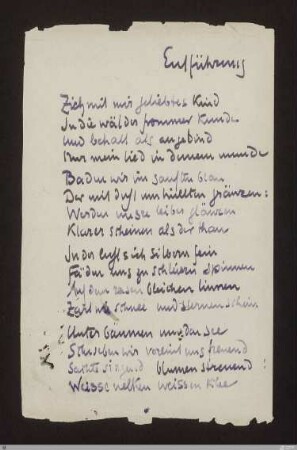 Entführung
Zieh mit mir geliebtes Kind
In die wälder frommer Kunde
Und behalt als angebind
Nur mein lied in deinem munde
Baden wir im sanften blau
Der mit duft umhüllten gränzen:
Werden unsre leiber glänzen
Klarer scheinen als der thau
In der luft sich silbern fein
Fäden uns zu schleiern spinnen
Auf dem rasen bleichen linnen
Zart wie schnee und sternenschein
Unter bäumen um den see
Schweben wir vereint uns freuend
Sachte singend blumen streuend
Weisse nelken weissen klee